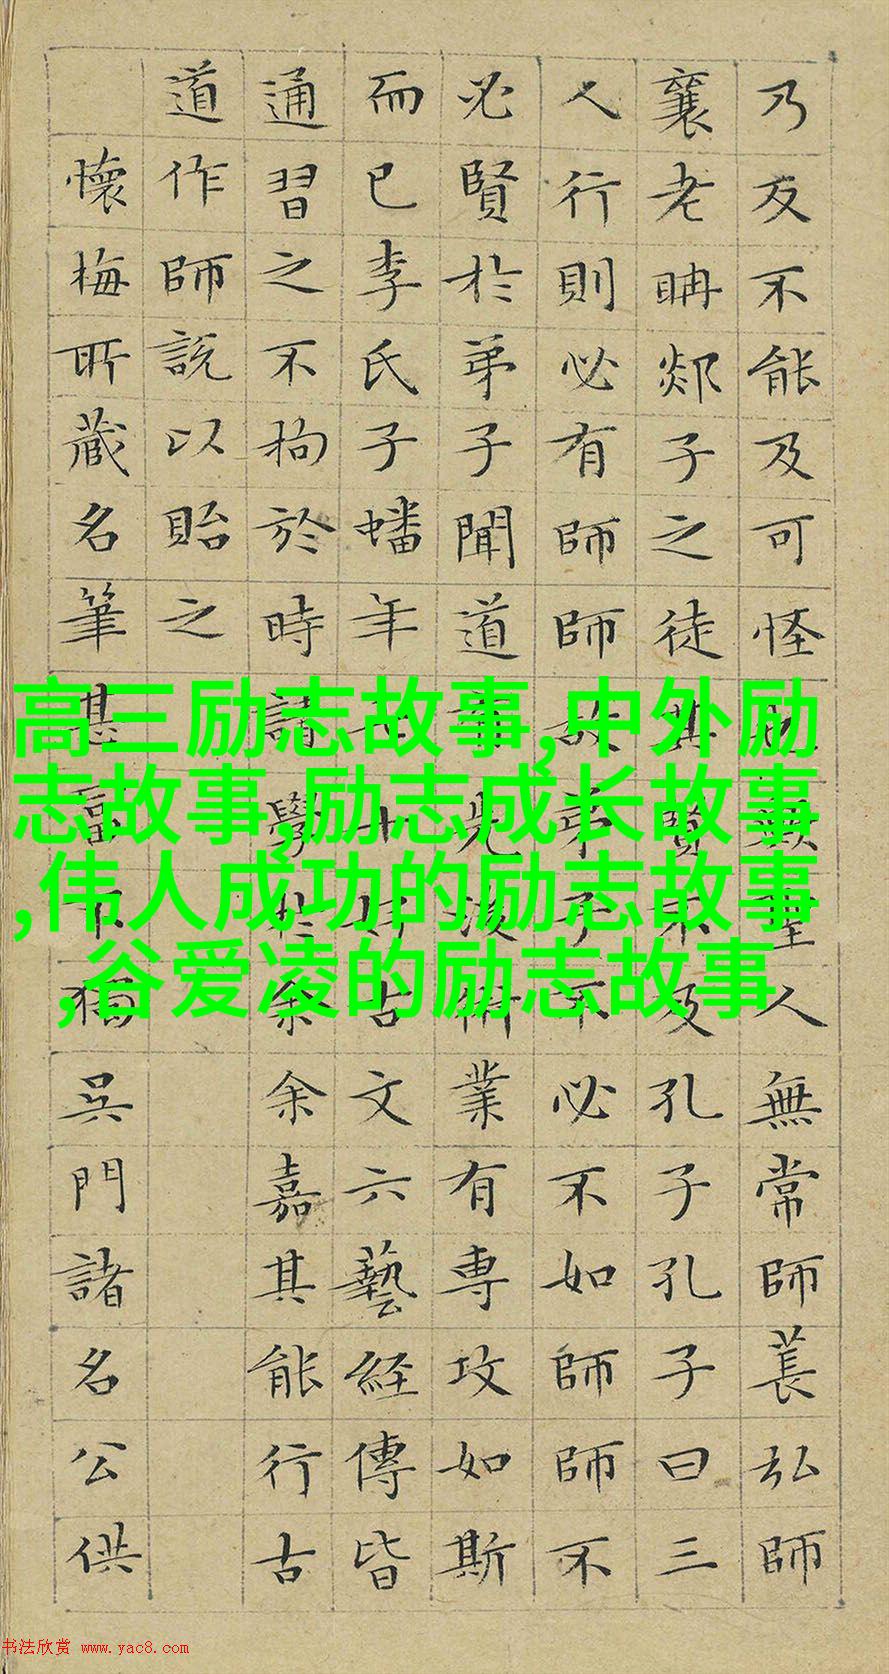 乃反不能及可怪也歟聖人無常師萇弘師
襄老聃郯子之徒其賢不及孔子孔子曰三
人行則必有師師故弟子不必不如師師不
必賢於弟子聞道有先後術業有專攻如斯
而已李氏子蟠年十七好古文六藝経傳皆
通習之不拘於時請學於余余嘉其能行古
道作師説以貽之
懷梅所藏名筆甚富不獨吳門諸名公供
高三励志故事,中外励
志故事,励志成长故事
,伟人成功的励志故事
,谷爱凌的励志故事
书法欣赏 www.yac8.com